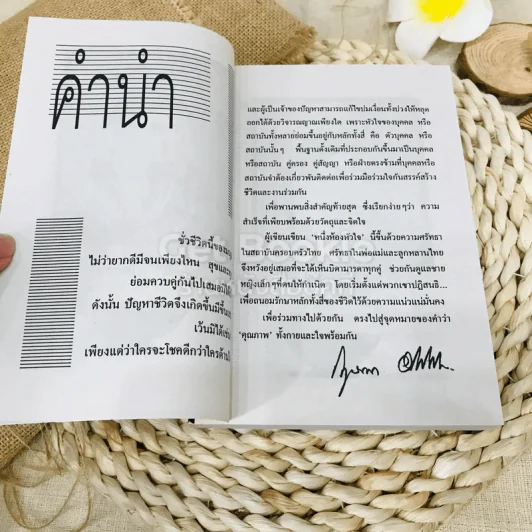 คำนำ
ชั่วชีวิตนี้ของ
ไม่ว่ายากดีมีจนเพียงไหน สุขและ
ย่อมควบคู่กันไปเสมอ
ดังนั้น ปัญหาชีวิตจึงเกิดขึ้นมี
เว้นมิได้
เพียงแต่ว่าใครจะโชคดีกว่าใครด้วย
และผู้เป็นเจ้าของปัญหาสามารถแก้ไขปมเงื่อนทั้งปวงให้หลุด
ออกได้ด้วยวิจารณญาณเพียงใด เพราะหัวใจของบุคคล หรือ
สถาบันทั้งหลายย่อมขึ้นอยู่กับหลักทั้งสี่ คือ ตัวบุคคล หรือ
สถาบันนั้นๆ พื้นฐานดั้งเดิมที่ประกอบกันขึ้นมาเป็นบุคคล
หรือสถาบัน คู่ครอง คู่สัญญา หรือฝ่ายตรงข้ามที่บุคคลหรือ
สถาบันจำต้องเกี่ยวพันติดต่อเพื่อร่วมมือร่วมใจกันสรรค์สร้าง
ชีวิตและงานร่วมกัน
เพื่อพานพบสิ่งสำคัญท้ายสุด ซึ่งเรียกง่ายๆว่า ความ
สำเร็จที่เพียบพร้อมด้วยวัตถุและจิตใจ
ผู้เขียนเขียน 'หนึ่งห้องหัวใจ' นี้ขึ้นด้วยความศรัทธา
ในสถาบันครอบครัวไทย ศรัทธาในพ่อแม่และลูกหลานไทย
จึงหวังอยู่เสมอที่จะได้เห็นบิดามารดาทุกคู่ ช่วยกันดูแลชาย
หญิงเล็กๆที่ตนให้กำเนิด โดยเริ่มตั้งแต่พวกเขาปฏิสนธิ...
เพื่อถนอมรักษาหลักทั้งสี่ของชีวิตไว้ด้วยความแน่วแน่มั่นคง
เพื่อร่วมทางไปด้วยกัน ตรงไปสู่จุดหมายของคำว่า
'คุณภาพ' ทั้งกายและใจพร้อมกัน